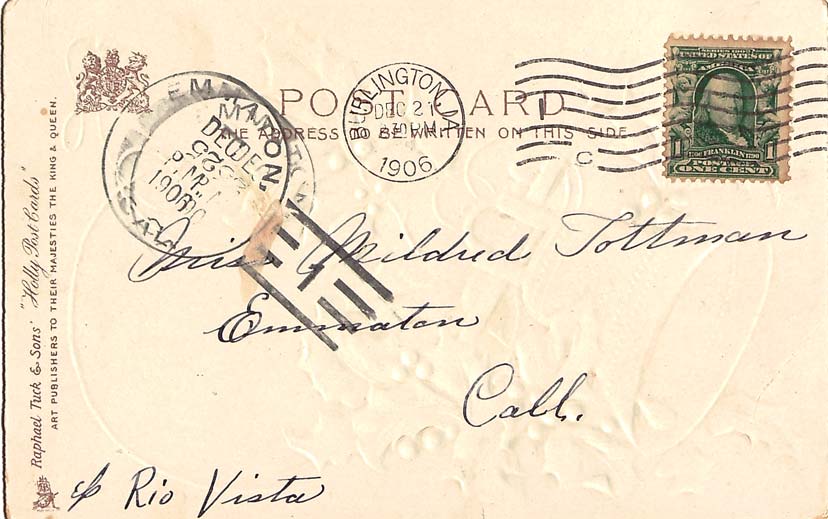 POST CARD
THE ADDRESS TO BE WRITTEN ON THIS SIDE
BURLINGTON, IA.
DEC 21
1906
C
SERIES 1902
1706 FRANKLIN 1790
POSTAGE
1 ONE CENT 1
EMMATON
DEC
1906
Miss Mildred Tottman
Emmaton
Call.
c/o Rio Vista
Raphael Tuck & Sons' "Holly Post Cards"
ART PUBLISHERS TO THEIR MAJESTIES THE KING & QUEEN.